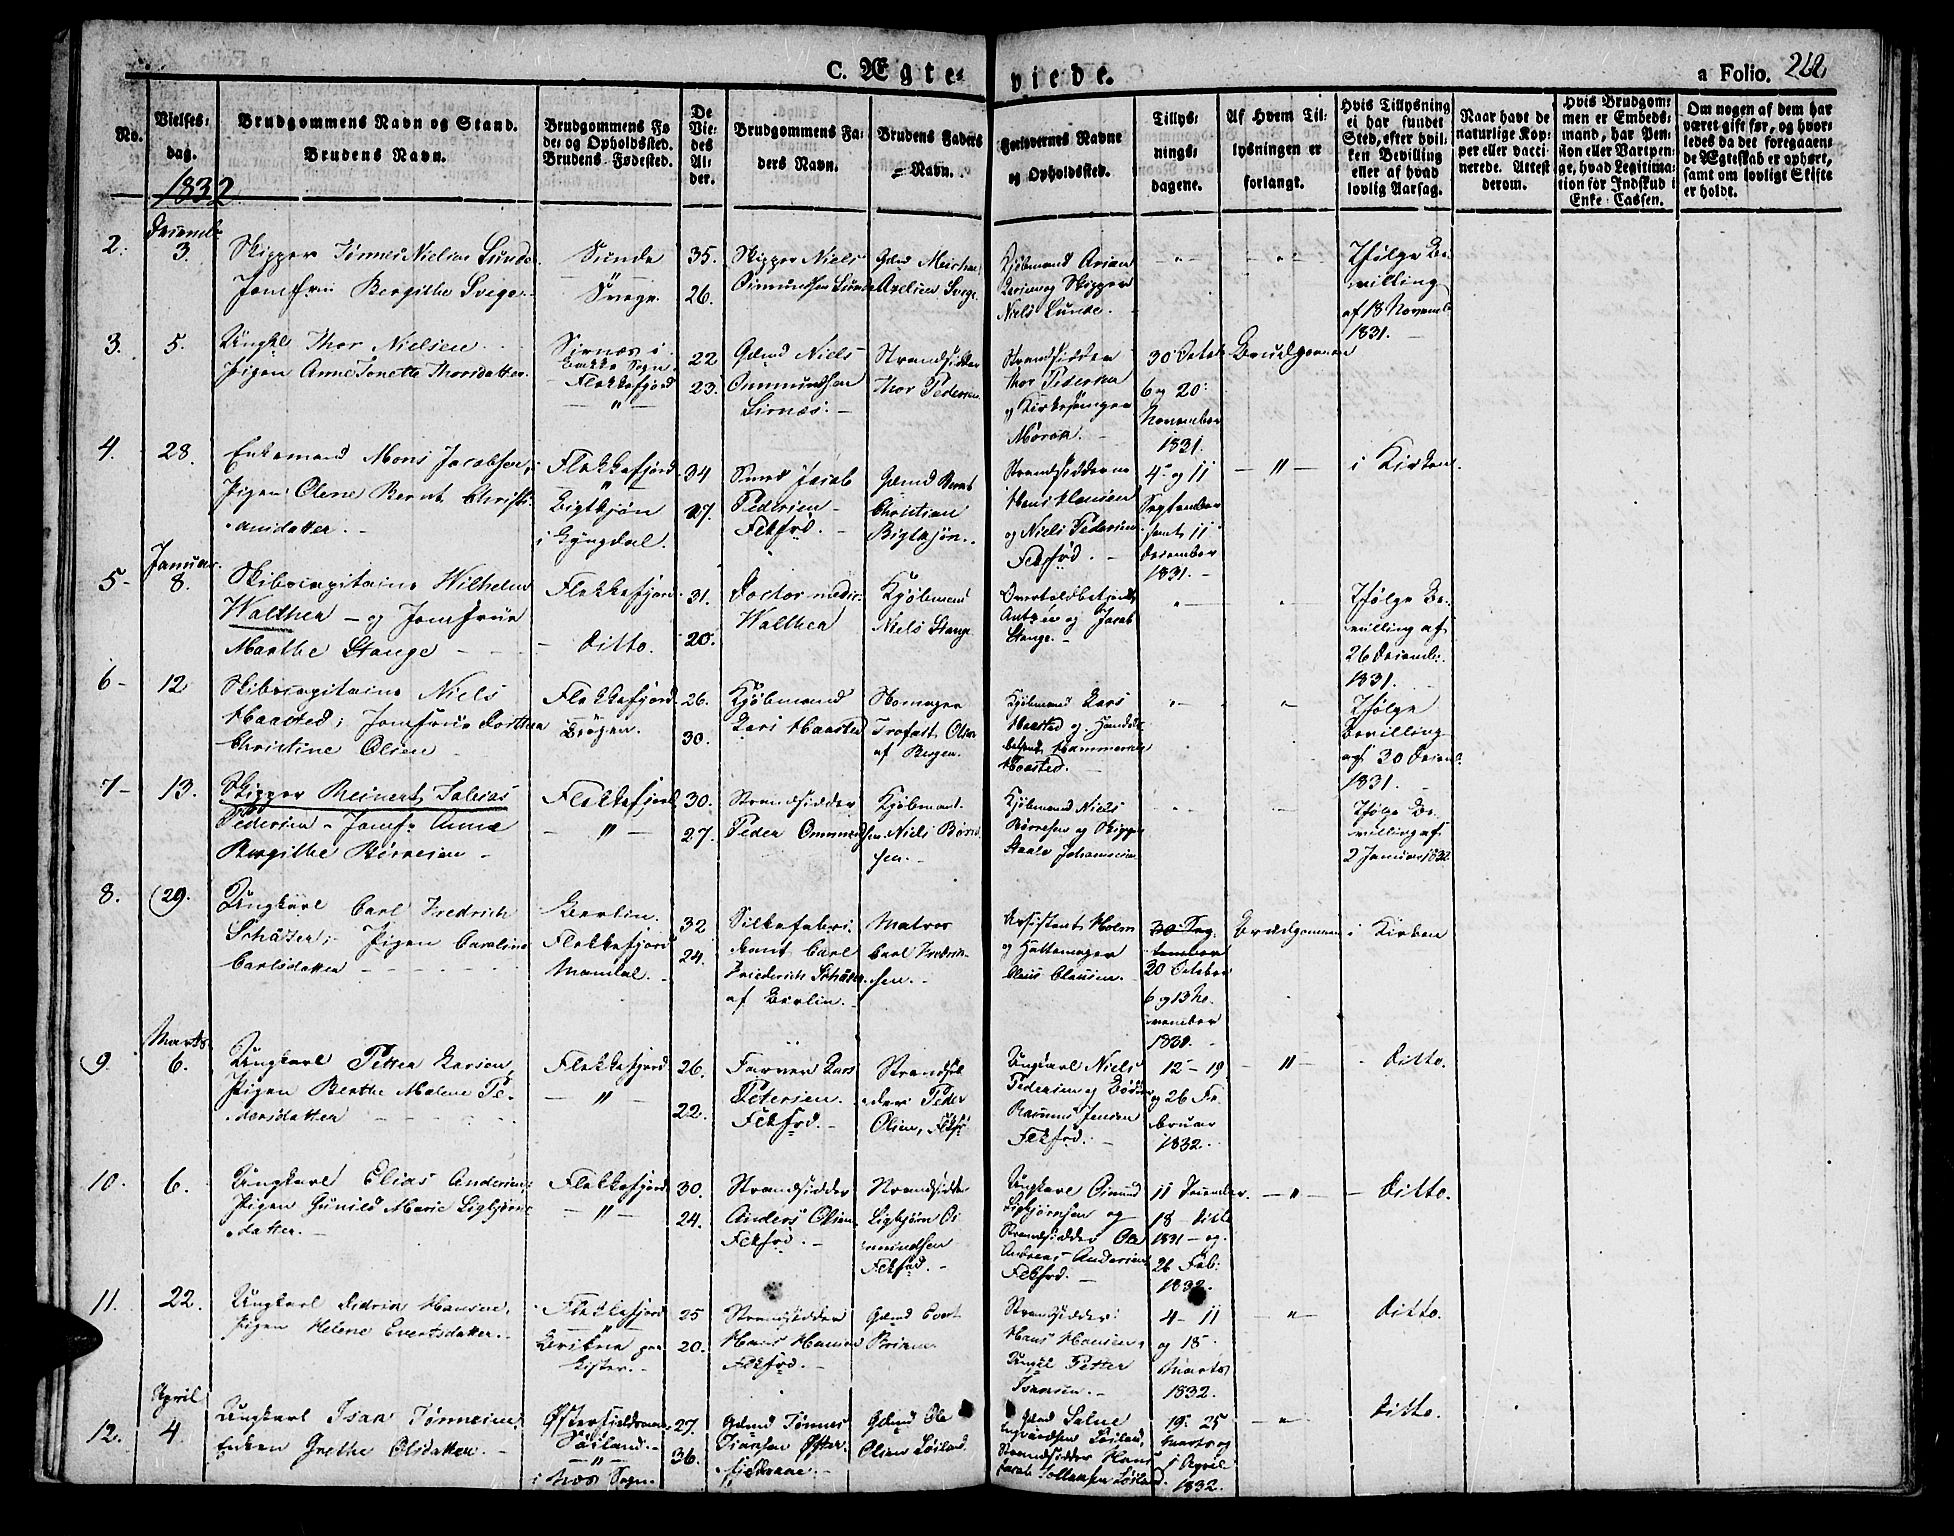 C. Ægte= viede.
a Folio. 262.
No.
Vielses=
dag.
Brudgommens Navn og Stand.
Brudens Navn.
Brudgommens Fø
de= og Opholdssted.
Brudens Fødested.
De
Vie=
des
Al=
der.
Brudgommens Fa=
ders Navn.
Brudens Faders
=Navn.
Forlovernes Navne
og Opholdssted.
Tillys=
nings=
dagene.
Af Hvem Til=
lysningen er
forlangt.
Hvis Tillysning
ei har fundet
Sted, efter hvil=
ken Bevilling
eller af hvad
lovlig Aarsag.
Naar havt de
naturlige Kop=
per eller vacci=
nerede. Attest
derom.
Hvis Brudgom=
men er Embeds=
mand, har Pen=
sion eller Vartpen=
ge, hvad Legitima=
tion for Indskud i
Enke=Cassen.
Om nogen af dem har
været gift før, og hvor=
ledes da det foregaaen=
de Ægteskab er ophørt,
samt om lovligt Skifte
er holdt.
1832
2.
3.
Skipper Tønnes Nielsen Sunde
Jomfrue Bergithe Svege
Sunde
"
Svege
35.
26.
Skipper Niels
Omundsen Sunde
Gmd Michael
Axelsen Svege
Kjøbmand Arian
og Skipper
Niels Sunde.
"
"
Ifølge Be=
villing
af 18 Novemb
1831.
3.
5.
Ungkl Thor Nielsen
Pigen Anne Tonette Thorsdatter
Sirnæs i
Bakke Sogn
Flekkefjord
"
22
23.
Gmd Niels
Ommundsen
Sirnæs.
Strandsidder
Thor Pedersen
Strandsidder
Thor Pedersen
og Kirkesanger
30 Octob
6 og 20
November
1831.
Brudgommen
4.
28.
Enkemand Mons Jacobsen,
Pigen Olene Bernt Christi=
ansdatter.
Flekkefjord
"
Bigtkjøn
i Qvindal.
34
27.
Smed Jacob
Pedersen
Fekfrd.
Gmd Bernt
Christian
Bigtkjøn.
Strandsidderne
Hans Hansen
og Niels Pedersen
Fekfrd.
4 og 11
September
samt 11
December
1831.
"
i Kirken.
5
Januar
8.
Skibscapitaine Wilhelm
Walther og Jomfrue
Marthe Stange
Flekkefjord
ditto.
31.
20.
Doctor medic.
Walther
Kjøbmand
Niels Stange
Overtoldbetjent
og Jacob
Stange.
"
"
Ifølge Be=
villing af
26 Decemb.
1831.
6
12
Skibscapitaine Niels
Haasted, Jomfrue Dorthea
Christine Olsen
Flekkefjord
Bergen.
26.
30.
Kjøbmand
Lars Haasted
Trofast Olsen
af Bergen.
Kjøbmand Lars
Haasted og
Haasted.
"
"
Ifølge
Bevilling
af 30 Decemb.
1831.
7
13.
Skipper Reinert Tobias
Pedersen Jomf. Anna
Bergithe Børresen
Flekkefjord
"
30.
27.
Strandsidder
Peder Ommund
sen
Kjøbmand
Niels Børre
sen.
Kjøbmand Niels
Børresen og Skipper
Johannesen
"
"
Ifølge Be=
villing af
2 Januar 1832
8.
(29.
Ungkarl Carl Fredrich
Schäfer, Pigen Caroline
Carlsdatter
Berlin.
Flekkefjord
Mandal.
32
24.
Silkefabri=
kant Carl
Friederich Schäfer
af Berlin.
Matros
Carl Fredrik=
sen.
Assistent Holm
og Hattemager
Claus Clausen.
30 Sep=
tember
30 October
6 og 13 No=
vember
1831.
Brudgommen
i Kirken
9.
Marts
6.
Ungkarl Petter Larsen,
Pigen Berthe Malene Pe=
dersdatter
Flekkefjord
"
26.
22.
Farver Lars
Petersen
Fekfrd.
Strandsid=
der Peder
Olsen, Fekf
Ungkarl Niels
Pedersen og
Rasmus Jensen
Fekfrd.
12 19
og 26 Fe=
bruar
1832.
"
ditto.
10.
6.
Ungkarl Elias Andersen,
Pigen Gunild Marie Ligbjørns
datter.
Flekkefjord
"
30.
24.
Strandsidder
Anders Olsen
Fekfrd.
Strandsidder
Ligbjørn
Fekfrd.
Ungkarl
Ligbjørnsen og
Strandsidder Ole
Andreas Andersen
Fekfrd.
11 December
18 ditto
1831 og
26 Feb.
1832.
"
ditto.
11.
22.
Ungkarl Didrik Hansen,
Pigen Helene Evertsdatter.
Flekkefjord
"
Lister.
25
20.
Strandsidder
Hans Hansen
Fekfrd.
Gmd Evert
Strandsidder
Hans Hansen,
Ungkl Petter
4 11
og 18
Marts
1832.
"
ditto.
12.
April
4.
Ungkarl Isak Tønnesen,
Enken Grethe Olsdatter.
"
i Næs Sogn.
27.
36.
Gmd Tønnes
Gmd Ole
Olsen Løiland
Gmd Salve
Løiland,
Strandsidder Hans
Løiland.
19 25
Marts og
1 April
1832.
"
ditto.